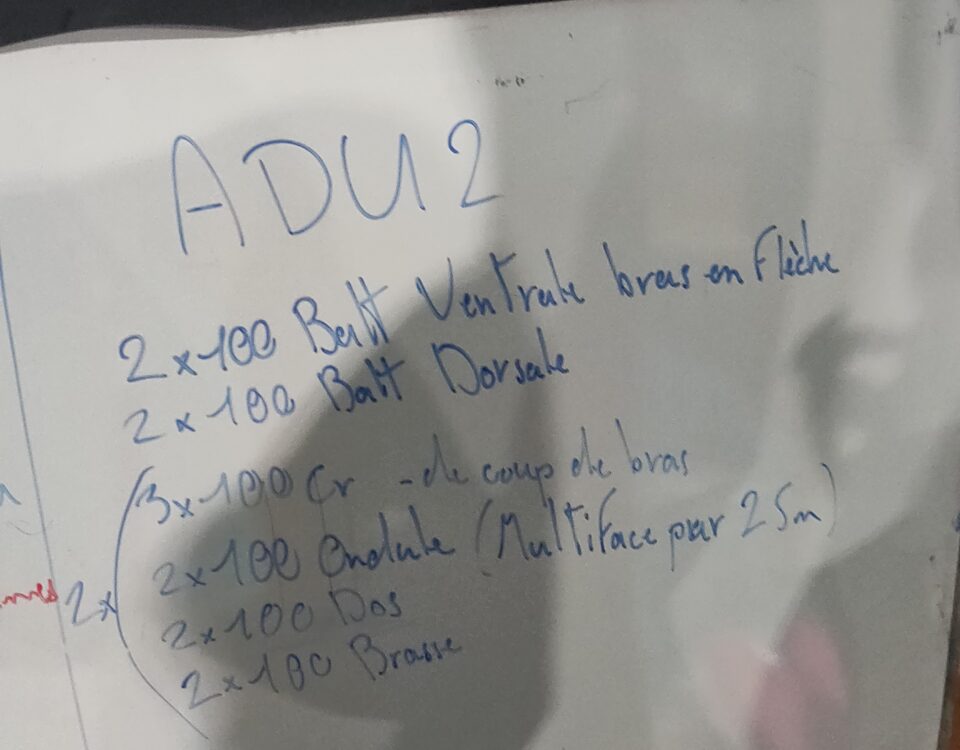 ADU2
2x100 Batt Ventrale bras en Flèche
2x100 Batt Dorsale
3x100 Cr -de coup de bras
2x100 Ondule (Multiface par 25m)
2x
2x100 Dos
2x100 Brasse